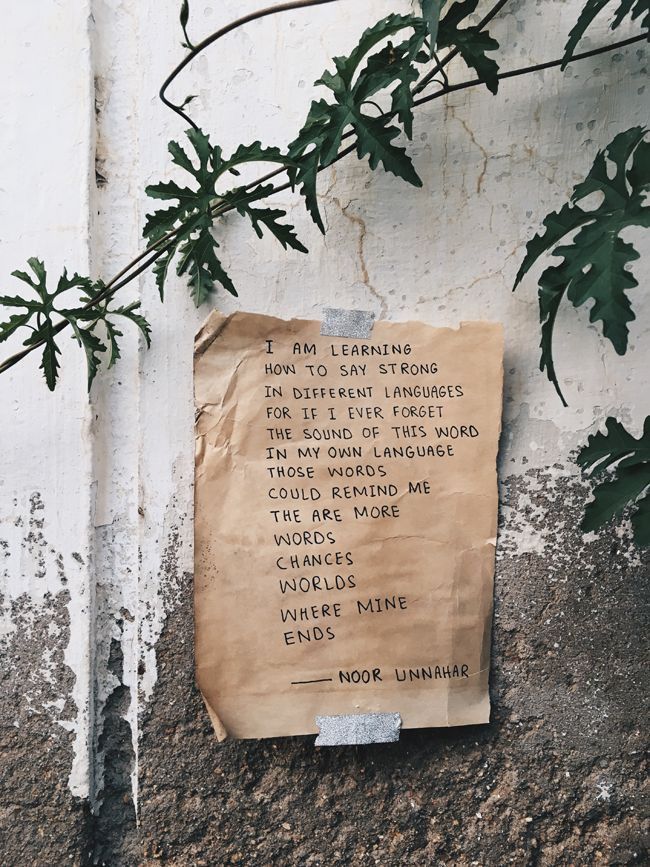 I AM LEARNING
HOW TO SAY STRONG
IN DIFFERENT LANGUAGES
FOR IF I EVER FORGET
THE SOUND OF THIS WORD
IN MY OWN LANGUAGE
THOSE WORDS
COULD REMIND ME
THE ARE MORE
WORDS
CHANCES
WORLDS
WHERE MINE
ENDS
—— NOOR UNNAHAR